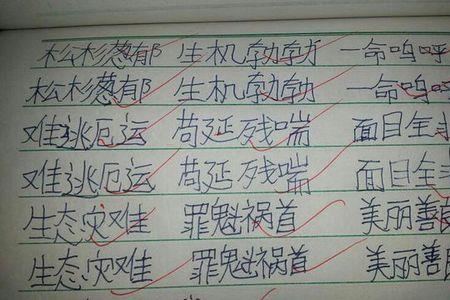 松杉葱郁 生机勃勃 一命呜呼
松杉葱郁 生机勃勃 一命呜
难逃厄运 苟延残喘 面目全
难逃厄运 苟延残喘 面目全
生态灾难 罪魁祸首 美丽善
生态灾难 罪魁祸首 美丽善